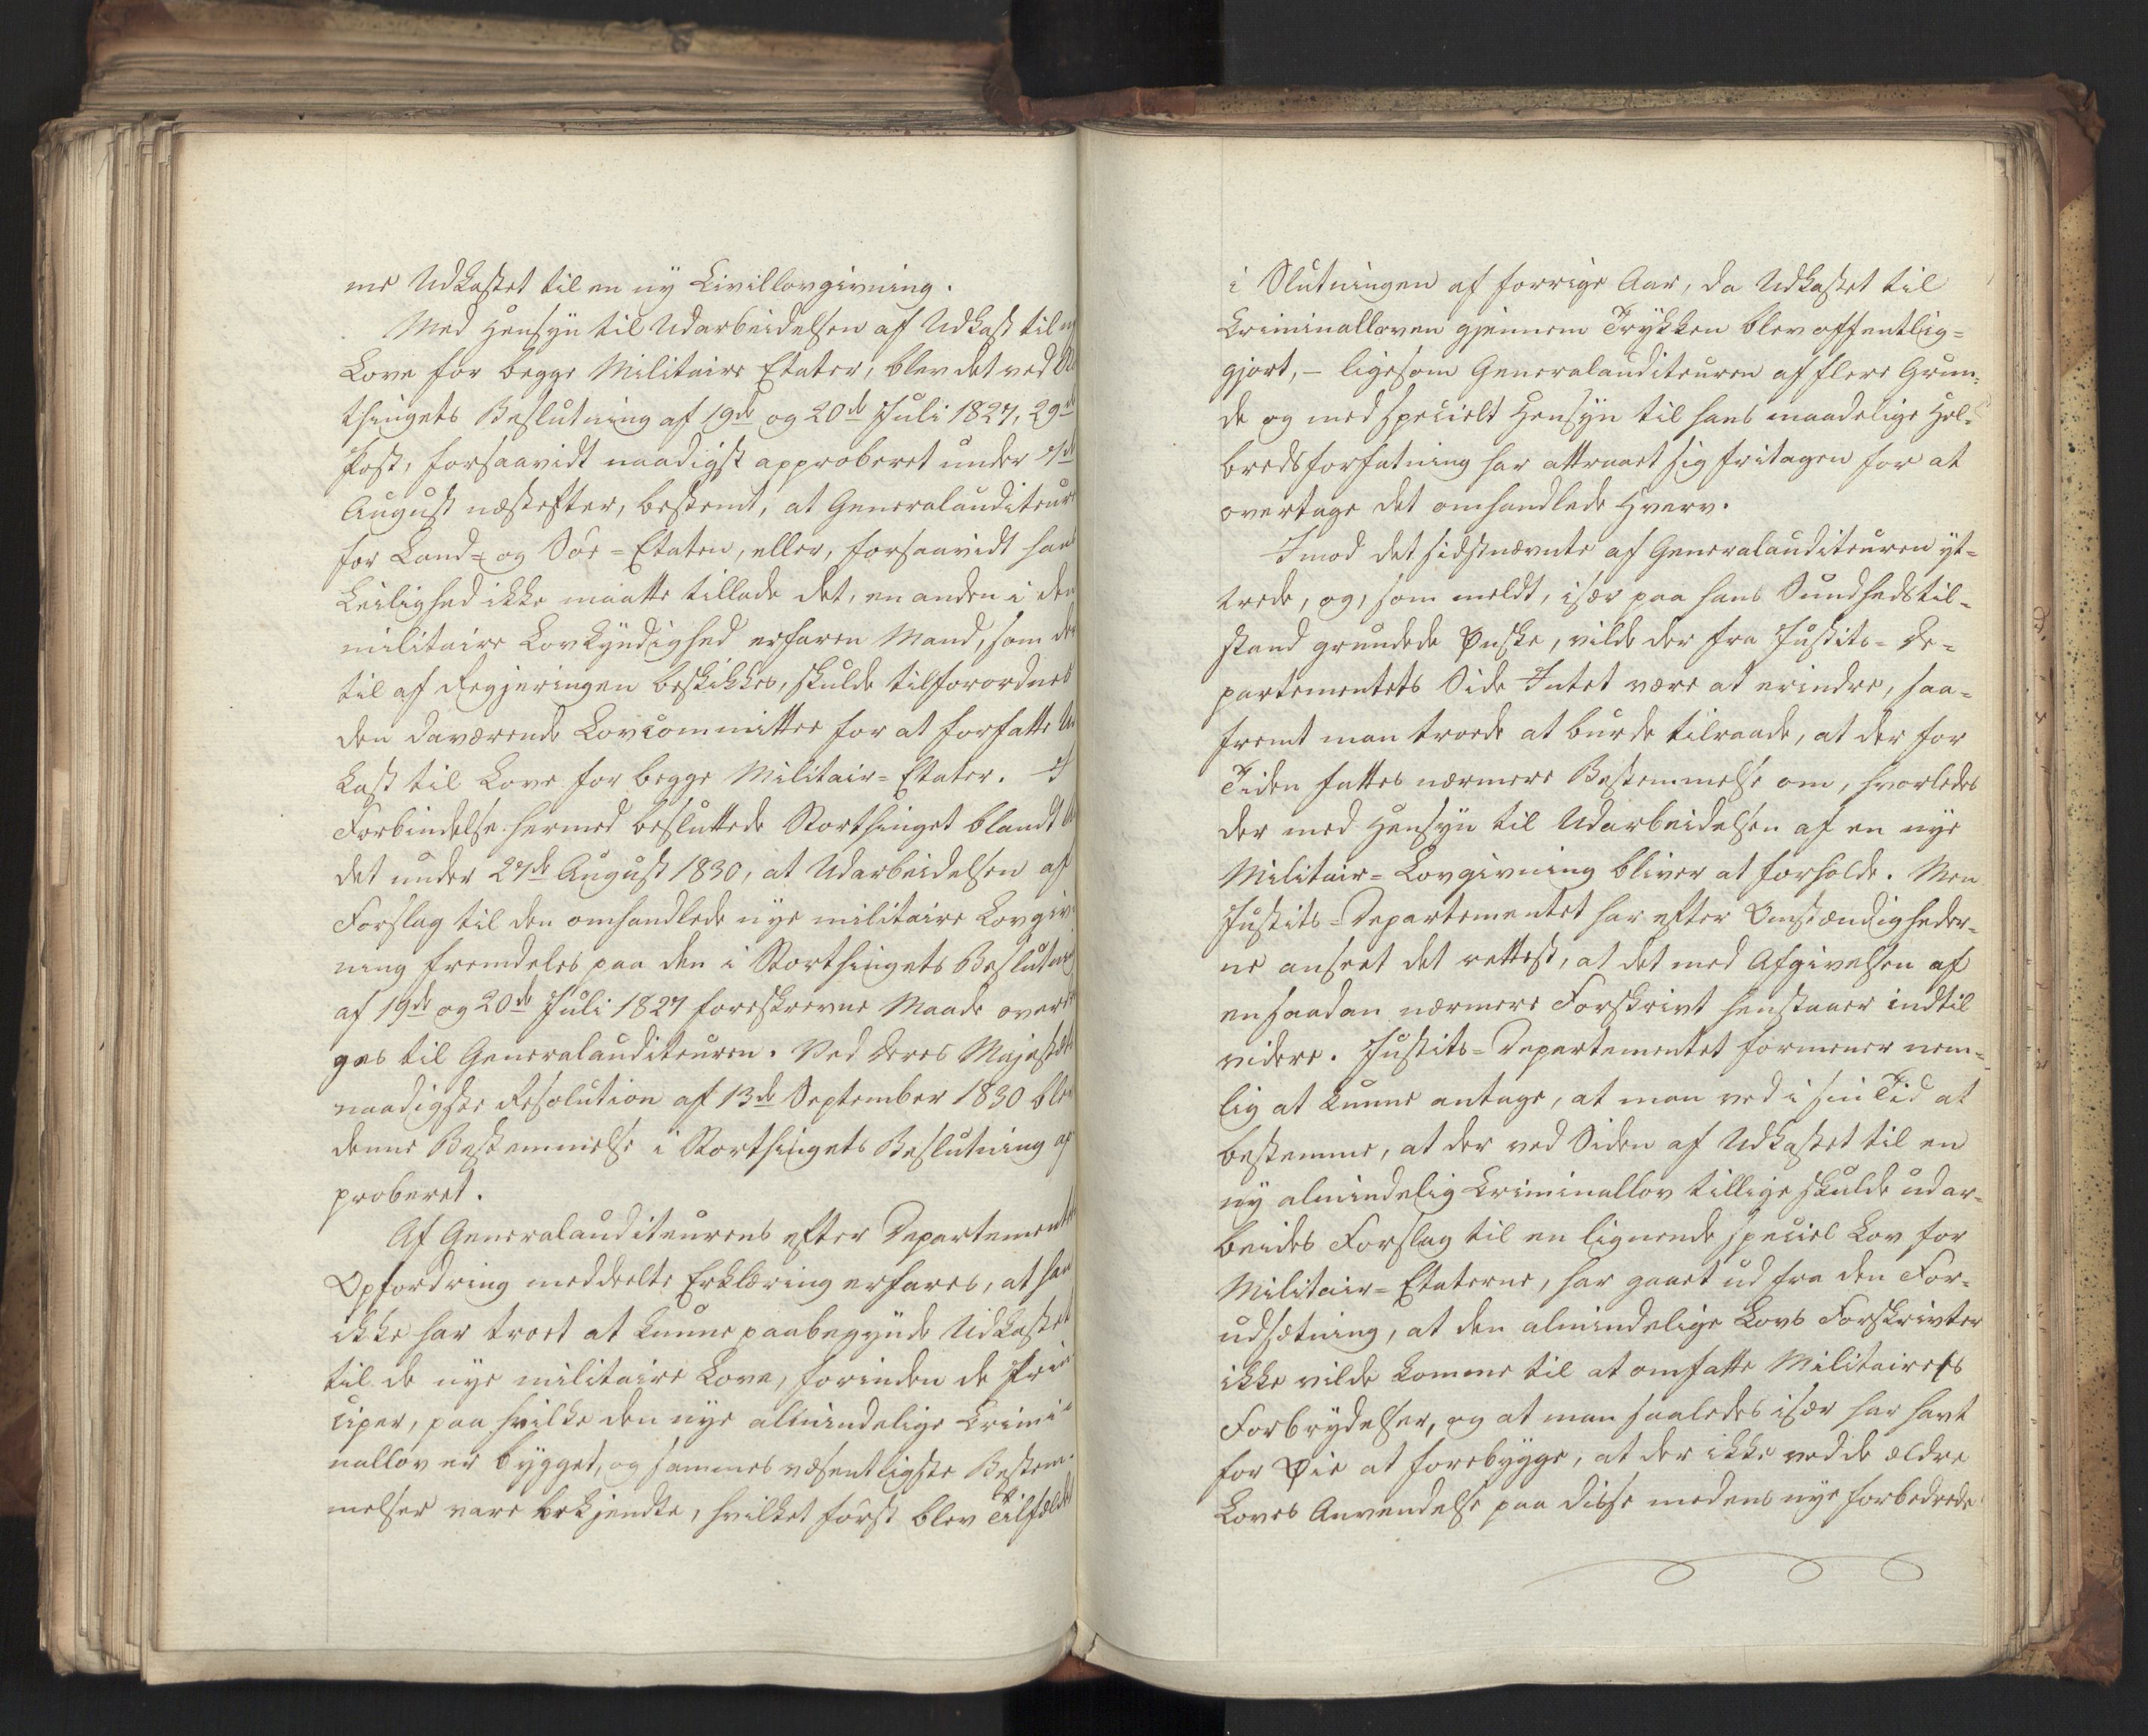 me Udkastet til en ny Civillovgivning.
Med Hensyn til Udarbeidelsen af Udkast til
Love for begge Militaire Etater, blev det ved
thingets Beslutning af 19de og 20de Juli 1827, 29de
Post, forsaavidt naadigst approberet under
August næstefter, bestemt, at Generalauditeur
for Land- og Söe-Etaten, eller, forsaavidt hans
Leilighed ikke maatte tillade det, en anden i den
militaire Lovkyndighed erfaren Mand, som der
til af Regjeringen beskikkes, skulde tilforordnes
den daværende Lovcommittee for at forfatte Ud
kast til Love for begge Militair-Etater. I
Forbindelse hermed besluttede Storthinget blandt
det under 27de August 1830, at Udarbeidelsen af
Forslag til den omhandlede nye militaire Lovgiv
ning fremdeles paa den i Storthingets Beslutning
af 19de og 20de Juli 1827 foreskrevne Maade overdra
ges til Generalauditeuren. Ved Deres Majestæts
naadigste Resolution af 13de September 1830 blev
denne Bestemmelse i Storthingets Beslutning ap
proberet.
Af Generalauditeurens efter Departementets
Opfordring meddeelte Erklæring erfares, at han
ikke har troet at kunne paabegynde Udkastet
til de nye militaire Love, forinden de Prin
ciper, paa hvilke den nye almindelige Crimi-
nallov er bygget, og sammes væsentligste Bestem-
melser vare bekjendte, hvilket först blev Tilfældet
i Slutningen af forrige Aar, da Udkastet til
Criminalloven gjennem Trykken blev offentlig-
gjort, – ligesom Generalauditeuren af flere Grun-
de og med specielt Hensyn til hans maadelige Hel-
bredsforfatning har attraaet sig fritagen for at
overtage det omhandlede Hverv.
Imod det sidstnævnte af Generalauditeuren yt-
trede, og, som meldt, især paa hans Sundhedstil-
stand grundede Ønske, vilde der fra Justits-De-
partementets Side Intet være at erindre, saa-
fremt man troede at burde tilraade, at der for
Tiden fattes nærmere Bestemmelse om, hvorledes
der med Hensyn til Udarbeidelsen af en nye
Militair-Lovgivning bliver at forholde. Men
Justits-Departementet har efter Omstændigheder-
ne anseet det rettest, at det med Afgivelsen af
en saadan nærmere Forskrivt henstaaer indtil
videre. Justits-Departementet formener nem-
lig at kunne antage, at man ved i sin Tid at
bestemme, at der ved Siden af Udkastet til en
ny almindelig Criminallov tillige skulde udar-
beides Forslag til en lignende speciel Lov for
Militair-Etaterne, har gaaet ud fra den For-
udsætning, at den almindelige Lovs Forskrivter
ikke vilde komme til at omfatte Militaires
Forbrydelser, og at man saaledes især har havt
for Øie at forebygge, at der ikke ved de ældre
Loves Anvendelse paa disse medens nye forbedrede